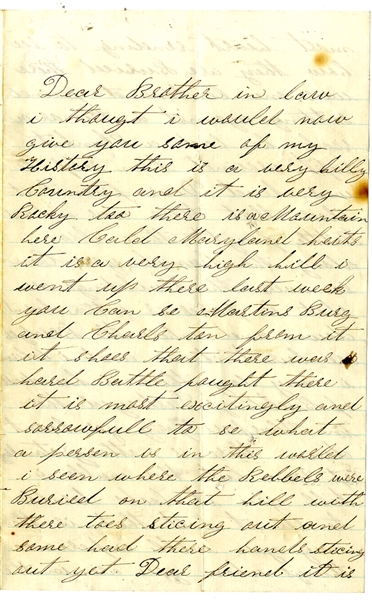 Dear Brother in law
i thougt i would now
give you some of my
History this is a very hilly
Country and it is very
Rocky too there is a Mountain
here Cald Maryland heits
it is a very high hill i
went up there last week
you Can se Martins Burg
and Charls tan from it
it shoes that there was a
hard Battle fought there
it is most excitingly and
sorrowfull to se what
a person is in this world
i seen where the Rebbels were
Buried on that hill with
there toes sticing out and
some had there hands sticing
out yet. Dear friend it is